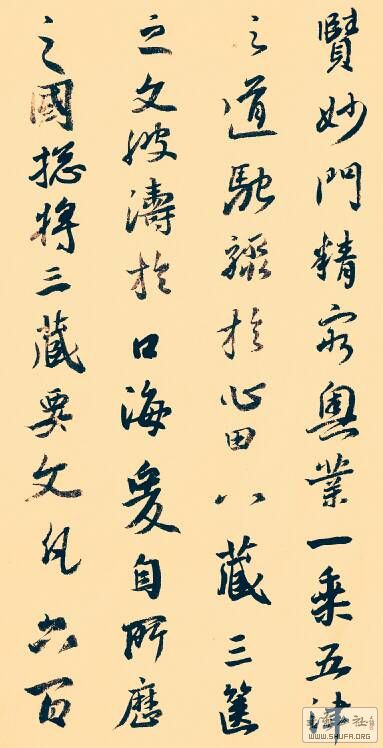 賢妙門精窮奥業一乗五律
之道馳驟於心田八藏三篋
之文波濤於口海爰自所歷
之國揔將三藏要文凡六百
WWW.SHUFA.ORG